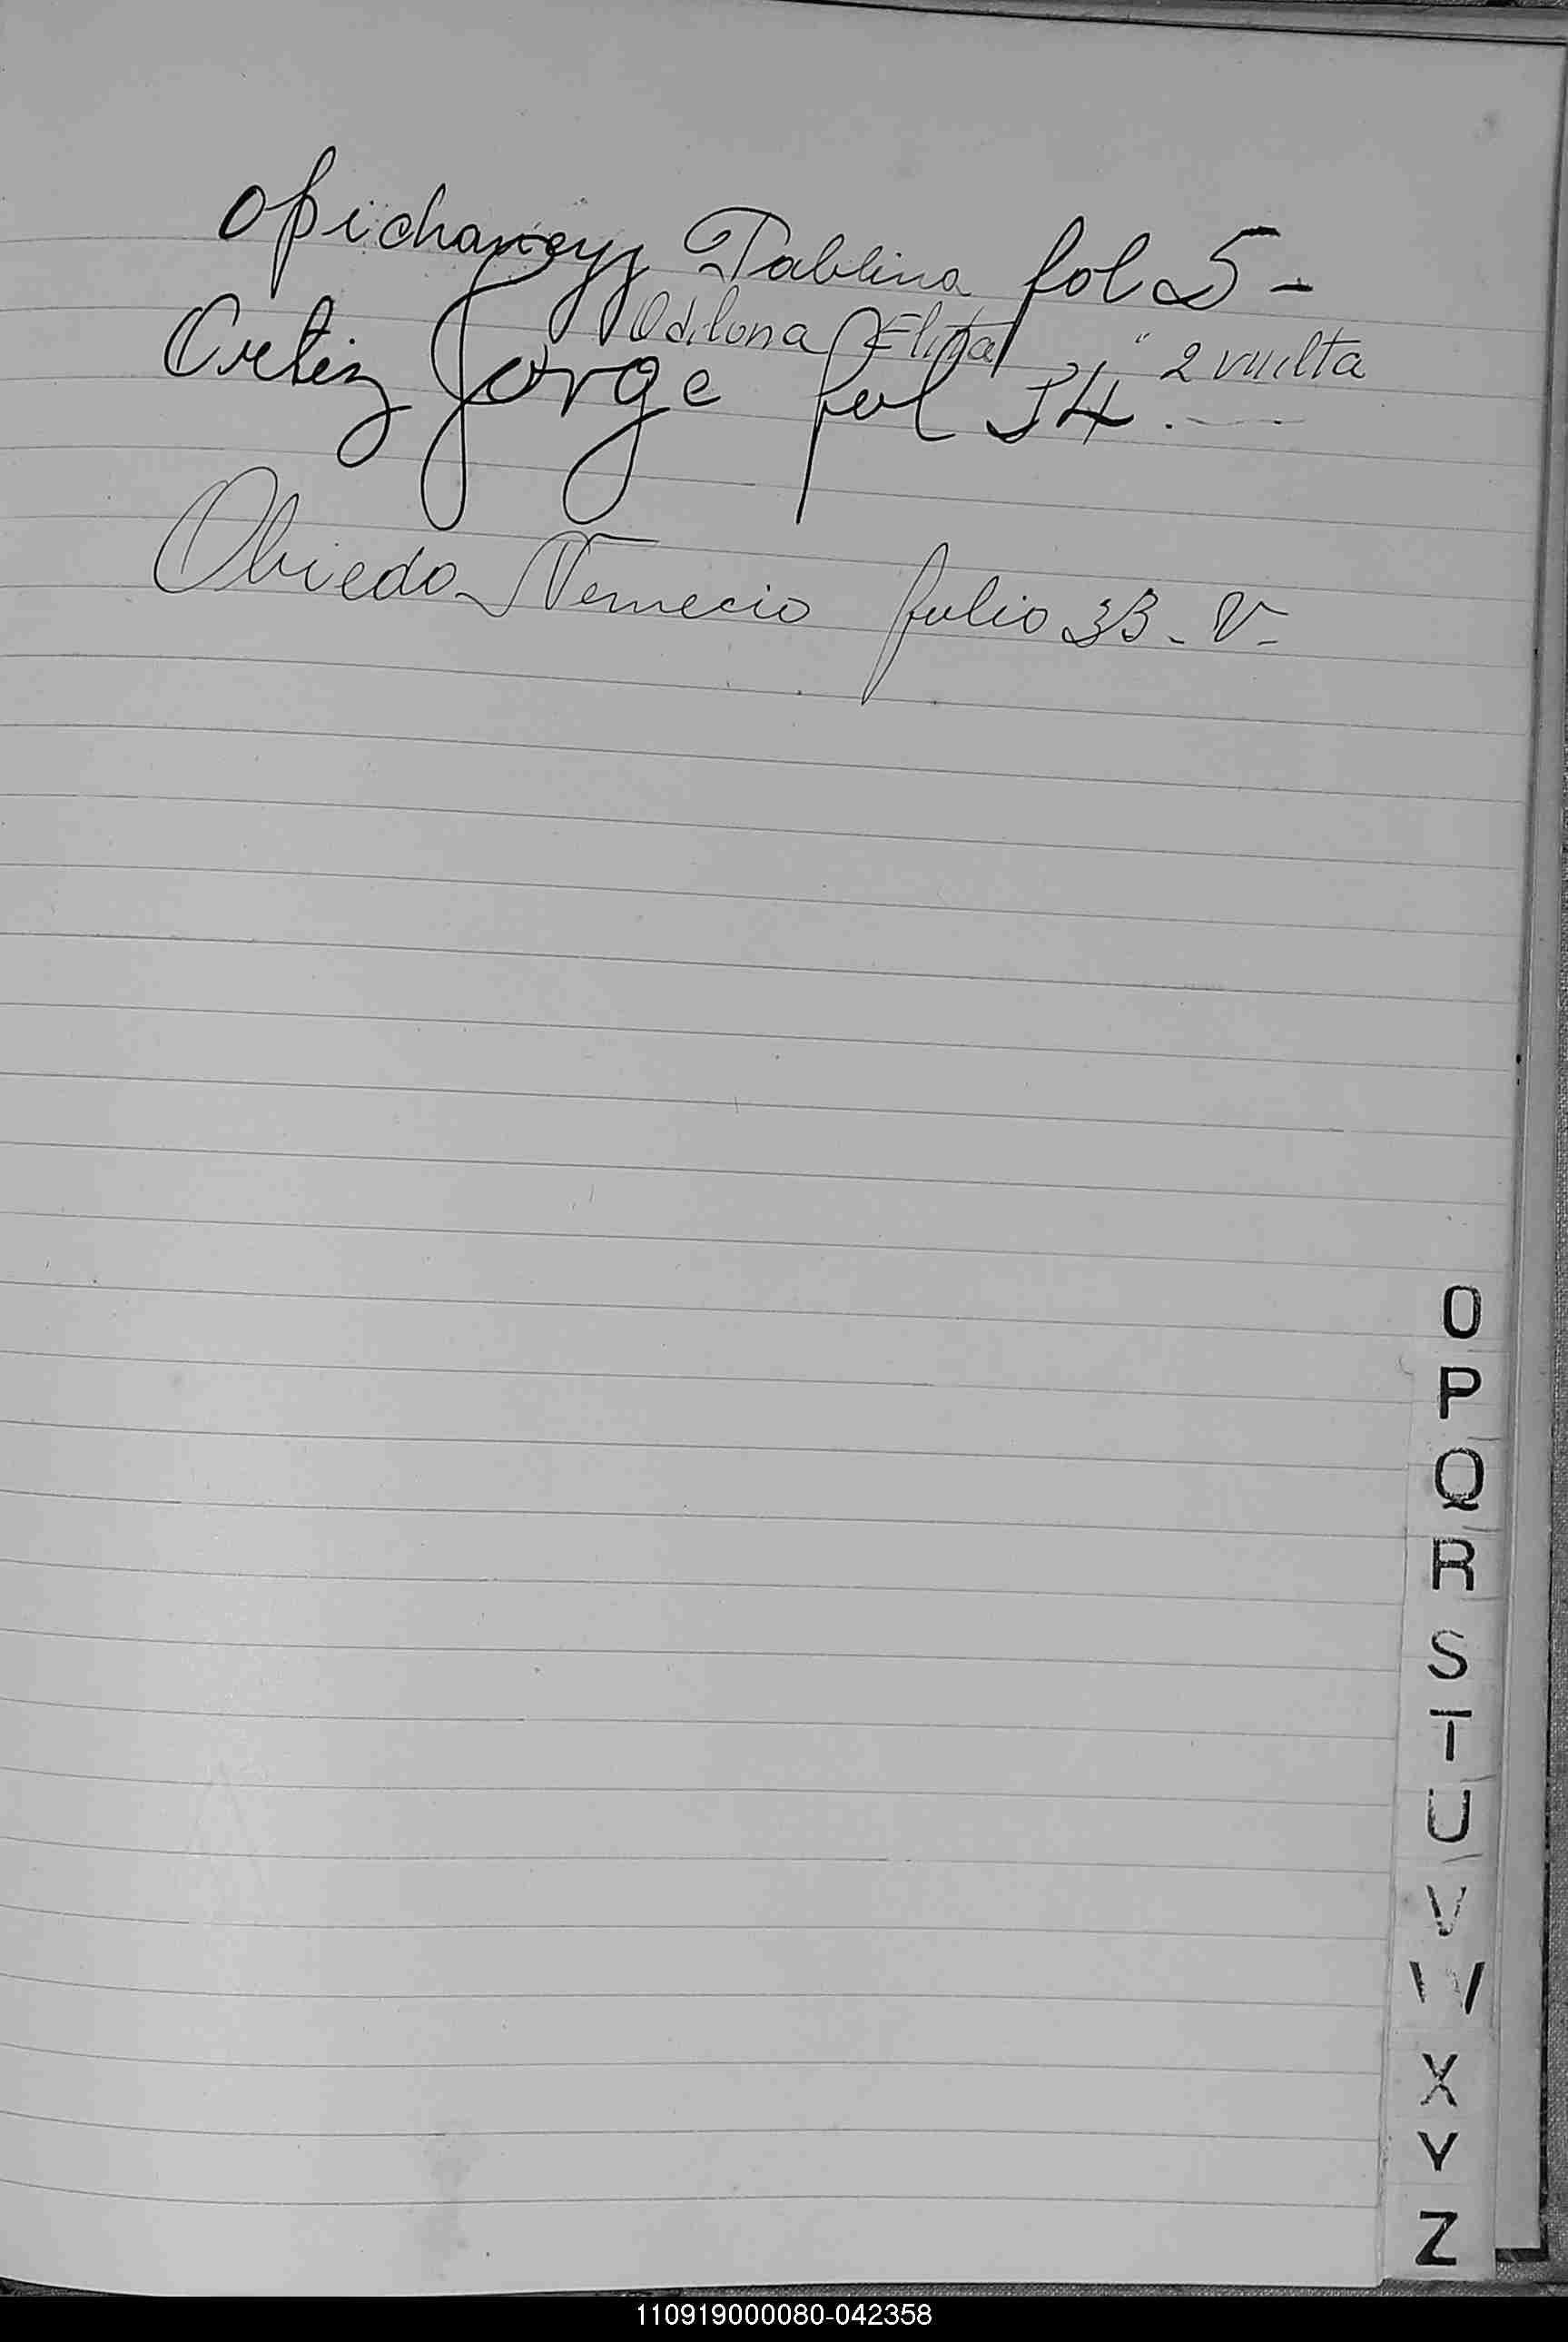 Opichaney Pablina fol 5 -
Odilona Elida " 2 vuelta
Ortiz Jorge fol 34. -
Obiedo Nemecio folio 33 - V -
O
P
Q
R
S
T
U
V
W
X
Y
Z
110919000080-042358